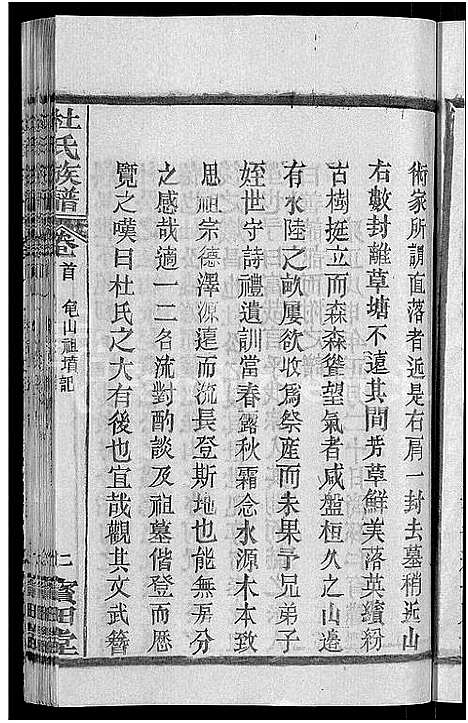 術家所謂直落者近是右肩一封去墓稍近山
右數封離草塘不遠其間芳草鮮美落英繽粉
古樹挺立而森森聳望氣者咸盤桓久之山邊
有水陸之畝屢欲收爲祭產而未果予兄弟子
姪世守詩禮遺訓當春露秋霜念水源木本致
思祖宗德澤源遠而流長登斯地也能無房分
之感哉適一二名流對酌談及祖墓偕登而歷
覽之嘆曰杜氏之大有後也宜哉觀其文武簪
杜氏族譜
卷首 龟山祖墳記
二
堂